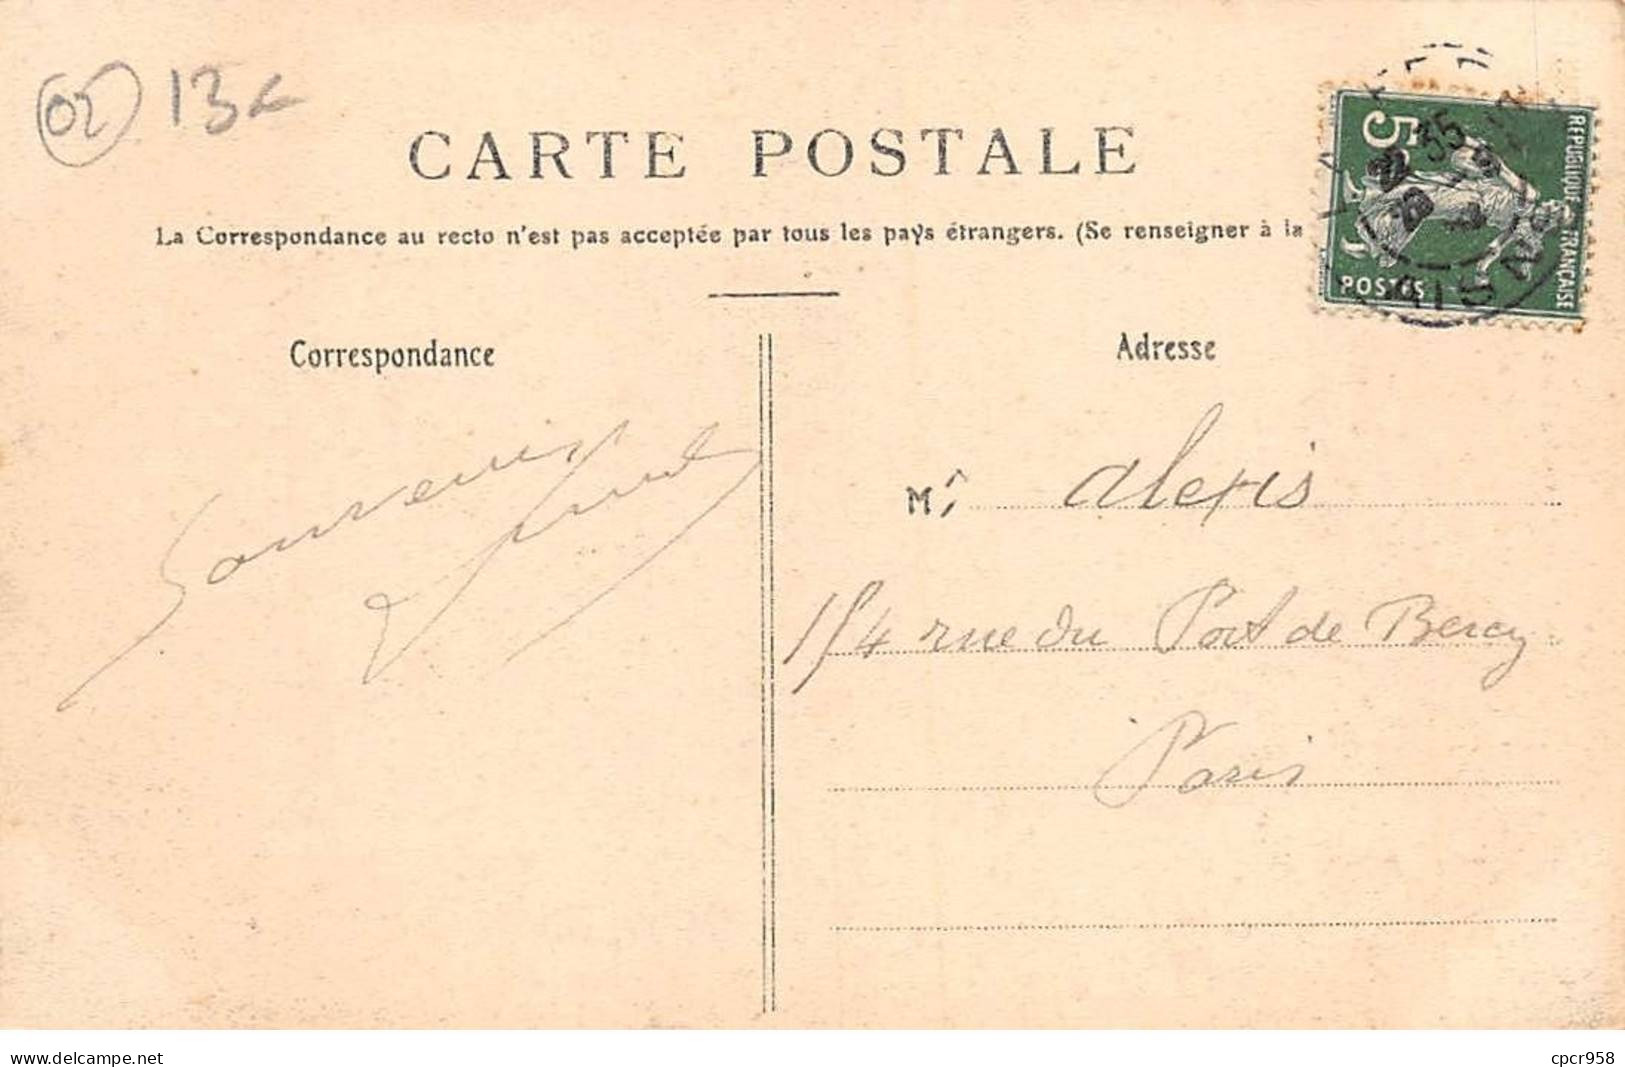 02 13
CARTE POSTALE
La Correspondance au recto n'est pas acceptée par tous les pays étrangers. (Se renseigner à la
5c
RÉPUBLIQUE FRANÇAISE
POSTES
22 35
Correspondance
Adresse
Souvenirs
Mr Alexis
114 rue du Port de Bercy
Paris
www.delcampe.net
cpcr958